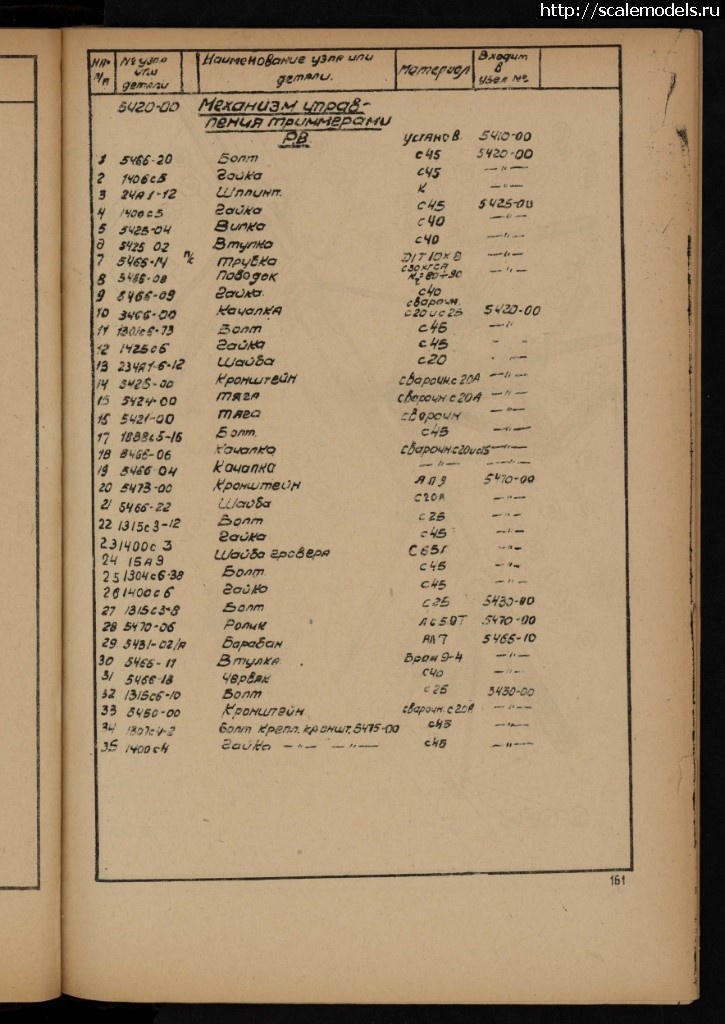 http://scalemodels.ru
№№ п/п № узла или детали Наименование узла или детали. Материал Входит в узел №
5420-00 Механизм управ-
ления триммерами
РВ установ. 5410-00
1 5466-20 Болт с45 5420-00
2 1406с5 Гайка с45 —"—
3 24А1-12 Шплинт. К —"—
4 1400с5 Гайка с45 5425-00
5 5425-04 Вилка с40 —"—
6 5425 02 Втулка с40 —"—
7 5466-14 п/с Трубка Д1Т10х8
8 5466-08 Поводок с30хгса —"—
9 5466-09 Гайка. с40
10 5466-00 Качалка сварочн. с20 и с25 5420-00
11 1301с6-73 Болт с45 —"—
12 1425с6 Гайка с45 " "
13 234А1-6-12 Шайба с20 —"—
14 5425-00 Кронштейн сварочн. с20А —"—
15 5424-00 Тяга сварочн с20А —"—
16 5421-00 Тяга сварочн —"—
17 1888с5-16 Болт. с45 —"—
18 5466-06 Качалка сварочн. с20 и с25 —"—
19 5466 04 Качалка —"— —"—
20 5473-00 Кронштейн АЛ9 5470-00
21 5466-22 Шайба с20А —"—
22 1315с3-12 Болт с25 —"—
23 1400с 3 Гайка с45 —"—
24 15А9 Шайба гровера С65г —"—
25 1304с6-38 Болт с45 —"—
26 1400с6 Гайка с45 —"—
27 1315с3-8 Болт с25 5430-00
28 5470-06 Ролик 5470-00
29 5431-02/А Барабан АЛ7 5466-10
30 5466-11 Втулка Брон 9-4 —"—
31 5466-13 Червяк с40 —"—
32 1315с6-10 Болт с25 5430-00
33 5450-00 Кронштейн. сварочн. с20А —"—
34 Болт крепл. кроншт. 5475-00 с45 —"—
35 1400с4 Гайка —"— —"— с45 —"—
161